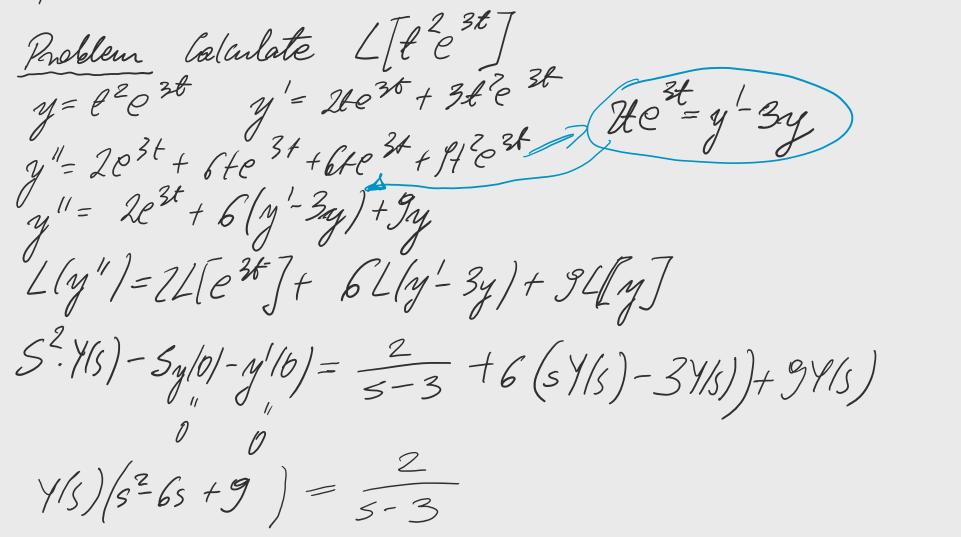 Problem Calculate L[t²e^{3t}]
y = t²e^{3t} y' = 2te^{3t} + 3t²e^{3t}
2te^{3t} = y' - 3y
y'' = 2e^{3t} + 6te^{3t} + 6te^{3t} + 9t²e^{3t}
y'' = 2e^{3t} + 6(y' - 3y) + 9y
L(y'') = 2L[e^{3t}] + 6L(y' - 3y) + 9L[y]
S²·Y(s) - Sy(0) - y'(0) = \frac{2}{s-3} + 6(sY(s) - 3Y(s)) + 9Y(s)
" "
0 0
Y(s)(s² - 6s + 9) = \frac{2}{s-3}